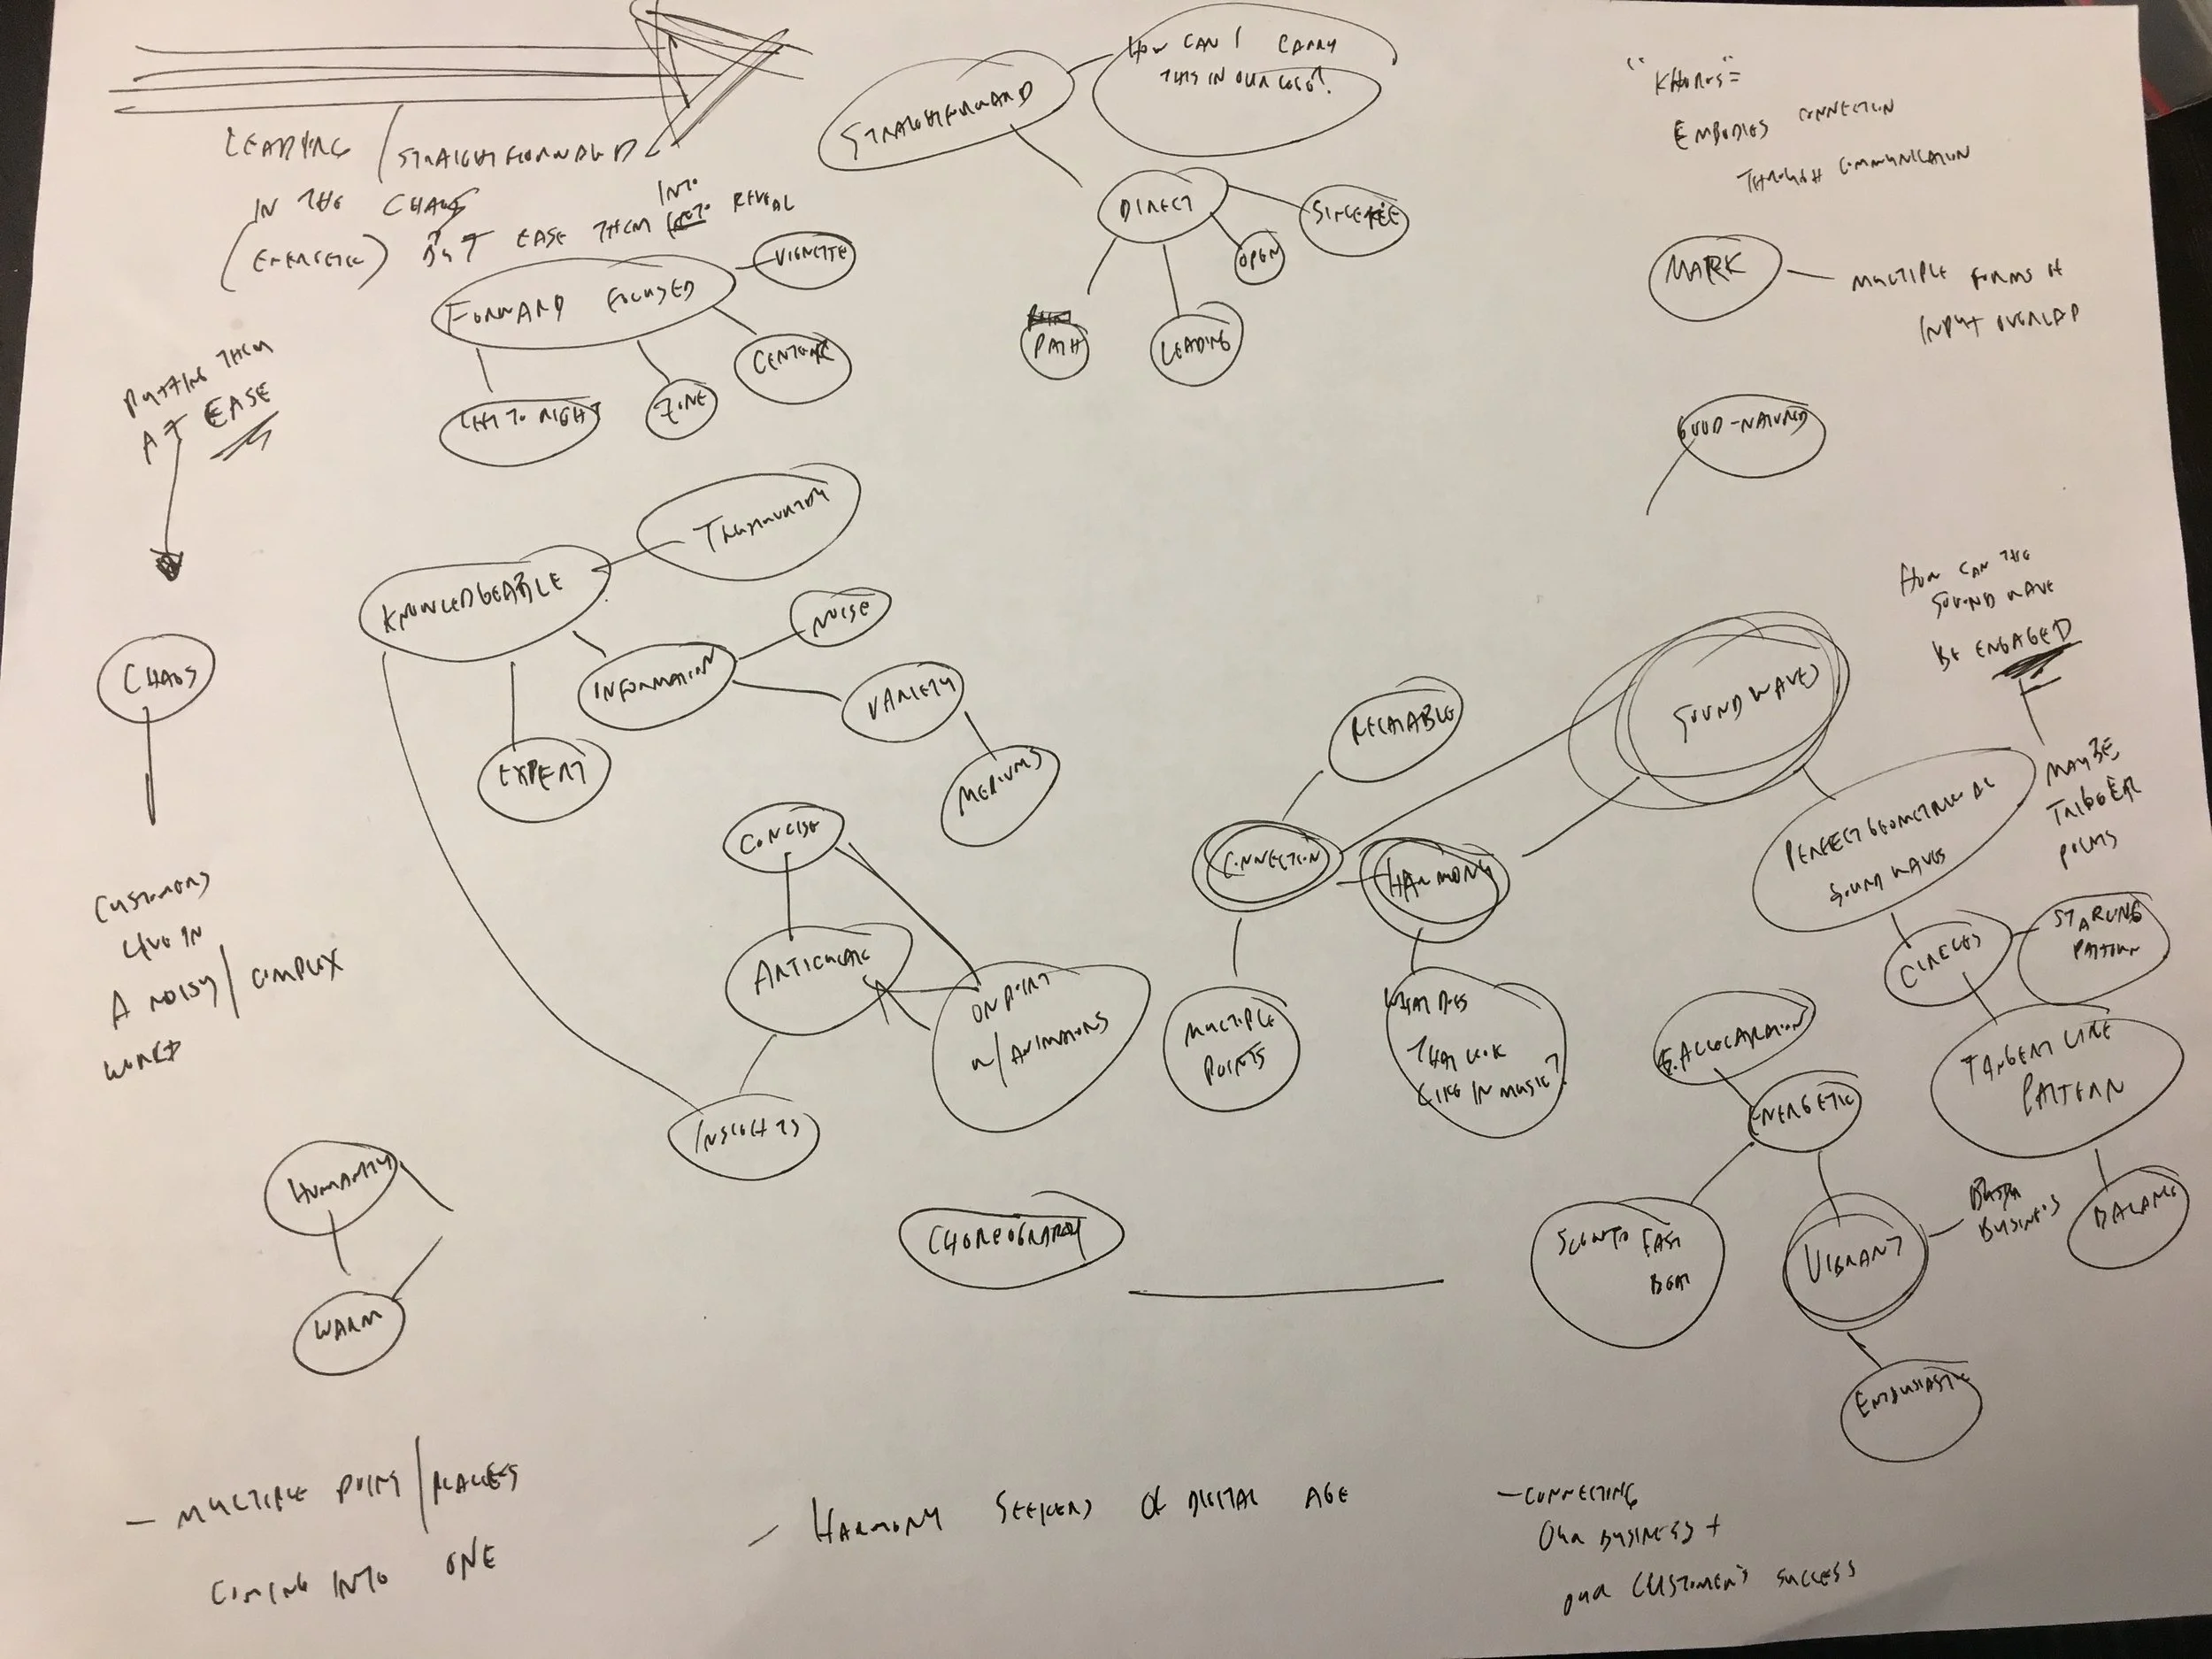 LEADING / STRAIGHTFORWARD
IN THE CHAOS
(ENERGETIC) BUT EASE THEM INTO REVEAL
STRAIGHTFORWARD
HOW CAN I CARRY
THIS IN OUR LOGO?
DIRECT
SINCERE
OPEN
PATH
LEADING
"
EMBODIES CONNECTION
THROUGH COMMUNICATION
MARK
MULTIPLE FORMS OF
INPUT OVERLAP
GOOD-NATURED
FORWARD FOCUSED
VIGNETTE
CENTER
LEFT TO RIGHT
ZONE
PUTTING THEM
AT EASE
CHAOS
CUSTOMERS
LIVE IN
A NOISY/COMPLEX
WORLD
KNOWLEDGEABLE
TRUSTWORTHY
NOISE
INFORMATION
VARIETY
MEDIUMS
EXPERT
CONCISE
ARTICULATE
ON POINT
W/ANIMATIONS
INSIGHTS
RELATABLE
CONNECTION
HARMONY
MULTIPLE
POINTS
WHAT DOES
THAT LOOK
LIKE IN MUSIC?
SOUND WAVES
HOW CAN THE
SOUND WAVE
BE ENGAGED
MAYBE
TRIGGER
POINTS
PERFECT GEOMETRICAL
SOUND WAVES
CIRCLES
PATTERN
TANGENT LINE
PATTERN
BALANCE
ENERGETIC
SLOW TO FAST
BEAT
VIBRANT
BUSINESS
ENTHUSIASTIC
HUMANITY
WARM
CHOREOGRAPHY
- MULTIPLE POINTS/PLACES
COMING INTO ONE
- HARMONY SEEKERS OF DIGITAL AGE
- CONNECTING
OUR BUSINESS +
OUR CUSTOMER'S SUCCESS